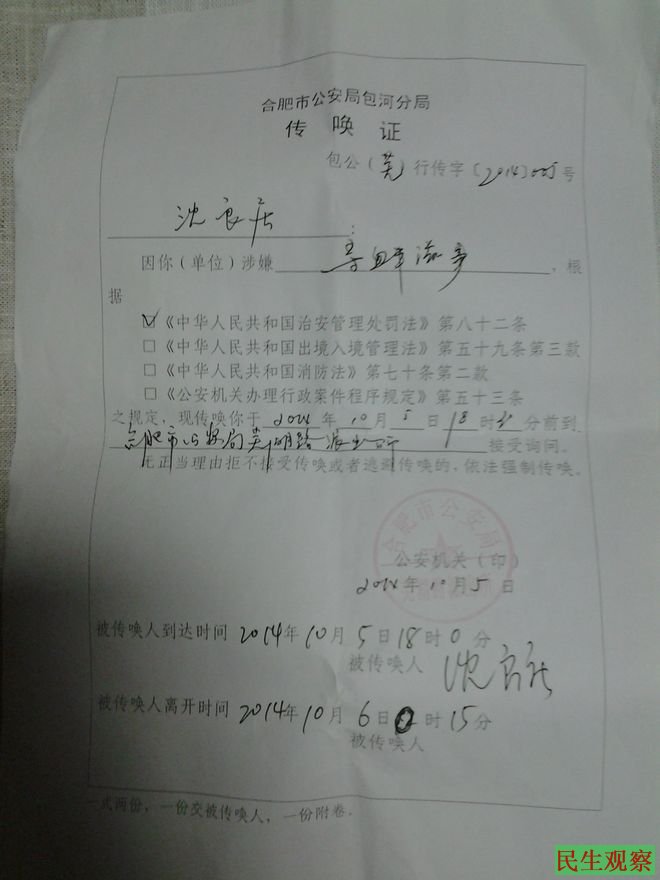 合肥市公安局包河分局
传唤证
包公（芜）行传字〔2014〕005号
沈良庆：
因你（单位）涉嫌寻衅滋事，根
据
☑《中华人民共和国治安管理处罚法》第八十二条
□《中华人民共和国出境入境管理法》第五十九条第三款
□《中华人民共和国消防法》第七十条第二款
□《公安机关办理行政案件程序规定》第五十三条
之规定，现传唤你于2014年10月5日18时 分前到
合肥市公安局芜湖路派出所接受询问。
无正当理由拒不接受传唤或者逃避传唤的，依法强制传唤。
合肥市公安局
公安机关（印）
2014年10月5日
被传唤人到达时间2014年10月5日18时0分
被传唤人 沈良庆
被传唤人离开时间2014年10月6日0时15分
被传唤人
一式两份，一份交被传唤人，一份附卷。
民生观察